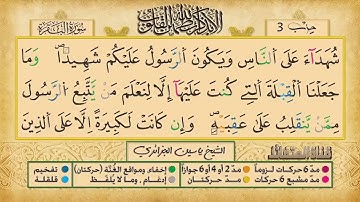 سُورَةُ الْبَقَرَةِ
أَلَا بِذِكْرِ اللَّهِ تَطْمَئِنُّ الْقُلُوبُ
حزب 3
شُهَدَآءَ عَلَى النَّاسِ وَيَكُونَ الرَّسُولُ عَلَيْكُمْ شَهِيدًا وَمَا
جَعَلْنَا الْقِبْلَةَ الَّتِي كُنتَ عَلَيْهَآ إِلَّا لِنَعْلَمَ مَنْ يَّتَّبِعُ الرَّسُولَ
مِمَّنْ يَّنقَلِبُ عَلَى عَقِبَيْهِ وَإِن كَانَتْ لَكَبِيرَةً إِلَّا عَلَى الَّذِينَ
الشيخ ياسين الجزائري
مدّ 6 حركات لزوماً مدّ 2 أو 4 أو 6 جوازاً إخفاء، ومواقع الغُنَّة (حركتان) تفخيم
مدّ مشبع 6 حركات مدّ حركتان إدغام، وما لا يُلفظ قلقلة